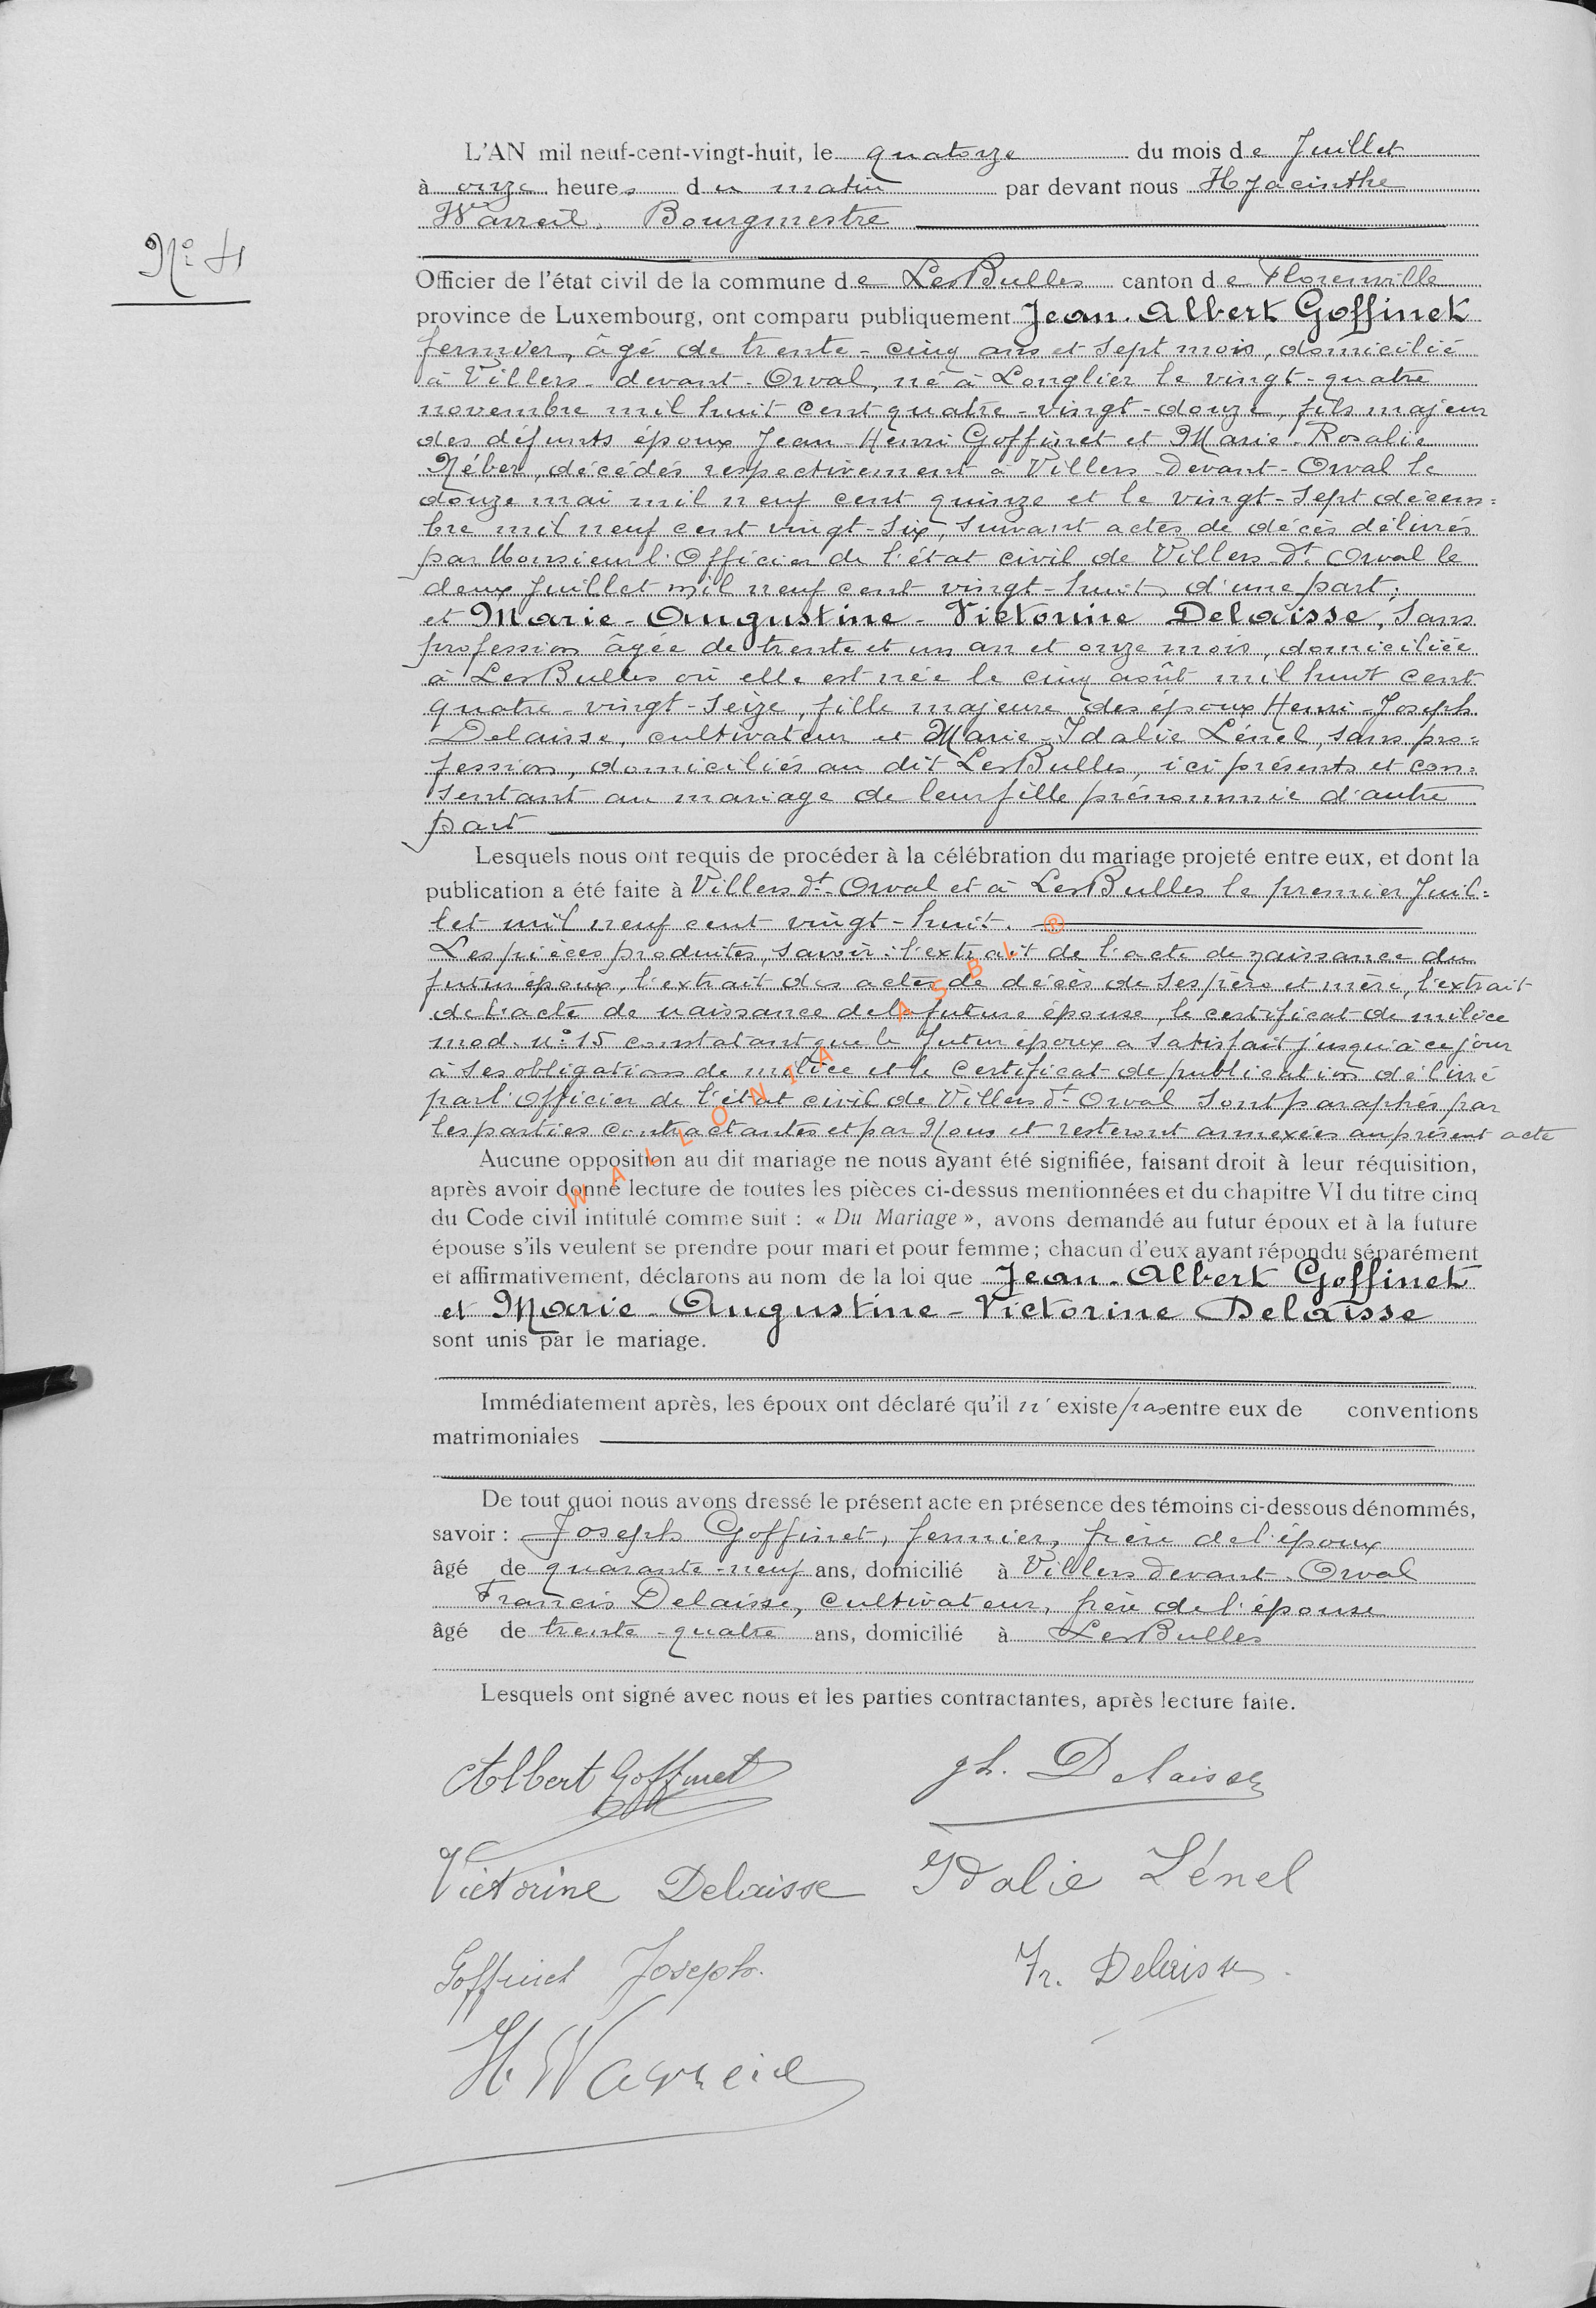 L'AN mil neuf-cent-vingt-huit, le quatorze du mois de Juillet
à onze heures du matin par devant nous Hyacinthe
Bourgmestre
No 4
Officier de l'état civil de la commune de Les Bulles canton de Florenville
province de Luxembourg, ont comparu publiquement Jean-Albert Goffinet
fermier, âgé de trente-cinq ans et sept mois, domicilié
à Villers-devant-Orval, né à Longlier le vingt-quatre
novembre mil huit cent quatre-vingt-douze, fils majeur
des défunts époux Jean-Henri Goffinet et Marie-Rosalie
décédés respectivement à Villers-devant-Orval le
douze mai mil neuf cent quinze et le vingt-sept décem=
bre mil neuf cent vingt-six, suivant actes de décès délivrés
par Monsieur l'Officier de l'état civil de Villers-dt-Orval le
deux Juillet mil neuf cent vingt-huit, d'une part;
et Marie-Augustine-Victorine Delaisse, sans
profession âgée de trente et un an et onze mois, domiciliée
à Les Bulles où elle est née le cinq août mil huit cent
quatre-vingt-seize, fille majeure des époux Henri-Joseph
Delaisse, cultivateur et Marie-Idalie Lénel, sans pro=
fession, domiciliés au dit Les Bulles, ici présents et con=
sentant au mariage de leur fille prénommée d'autre
part
Lesquels nous ont requis de procéder à la célébration du mariage projeté entre eux, et dont la
publication a été faite à Villers dt-Orval et à Les Bulles le premier Juil=
let mil neuf cent vingt-huit.
Les pièces produites, savoir: l'extrait de l'acte de naissance du
futur époux, l'extrait des actes de décès de ses père et mère, l'extrait
de l'acte de naissance de la future épouse, le certificat de milice
mod. no 15 constatant que le futur époux a satisfait jusqu'à ce jour
à ses obligations de milice et le certificat de publication délivré
par l'Officier de l'état civil de Villers dt-Orval sont paraphés par
les parties contractantes et par Nous et resteront annexées au présent acte
WALLONIA ASBL ®
Aucune opposition au dit mariage ne nous ayant été signifiée, faisant droit à leur réquisition,
après avoir donné lecture de toutes les pièces ci-dessus mentionnées et du chapitre VI du titre cinq
du Code civil intitulé comme suit : « Du Mariage », avons demandé au futur époux et à la future
épouse s'ils veulent se prendre pour mari et pour femme; chacun d'eux ayant répondu séparément
et affirmativement, déclarons au nom de la loi que Jean-Albert Goffinet
et Marie-Augustine-Victorine Delaisse
sont unis par le mariage.
Immédiatement après, les époux ont déclaré qu'il n'existe pas entre eux de conventions
matrimoniales
De tout quoi nous avons dressé le présent acte en présence des témoins ci-dessous dénommés,
savoir : Joseph Goffinet, fermier, frère de l'époux
âgé de quarante-neuf ans, domicilié à Villers devant-Orval
Francis Delaisse, cultivateur, frère de l'épouse
âgé de trente-quatre ans, domicilié à Les Bulles
Lesquels ont signé avec nous et les parties contractantes, après lecture faite.
Albert Goffinet
Delaisse
Victorine Delaisse
Idalie Lénel
Goffinet Joseph.
Fr. Delaisse.